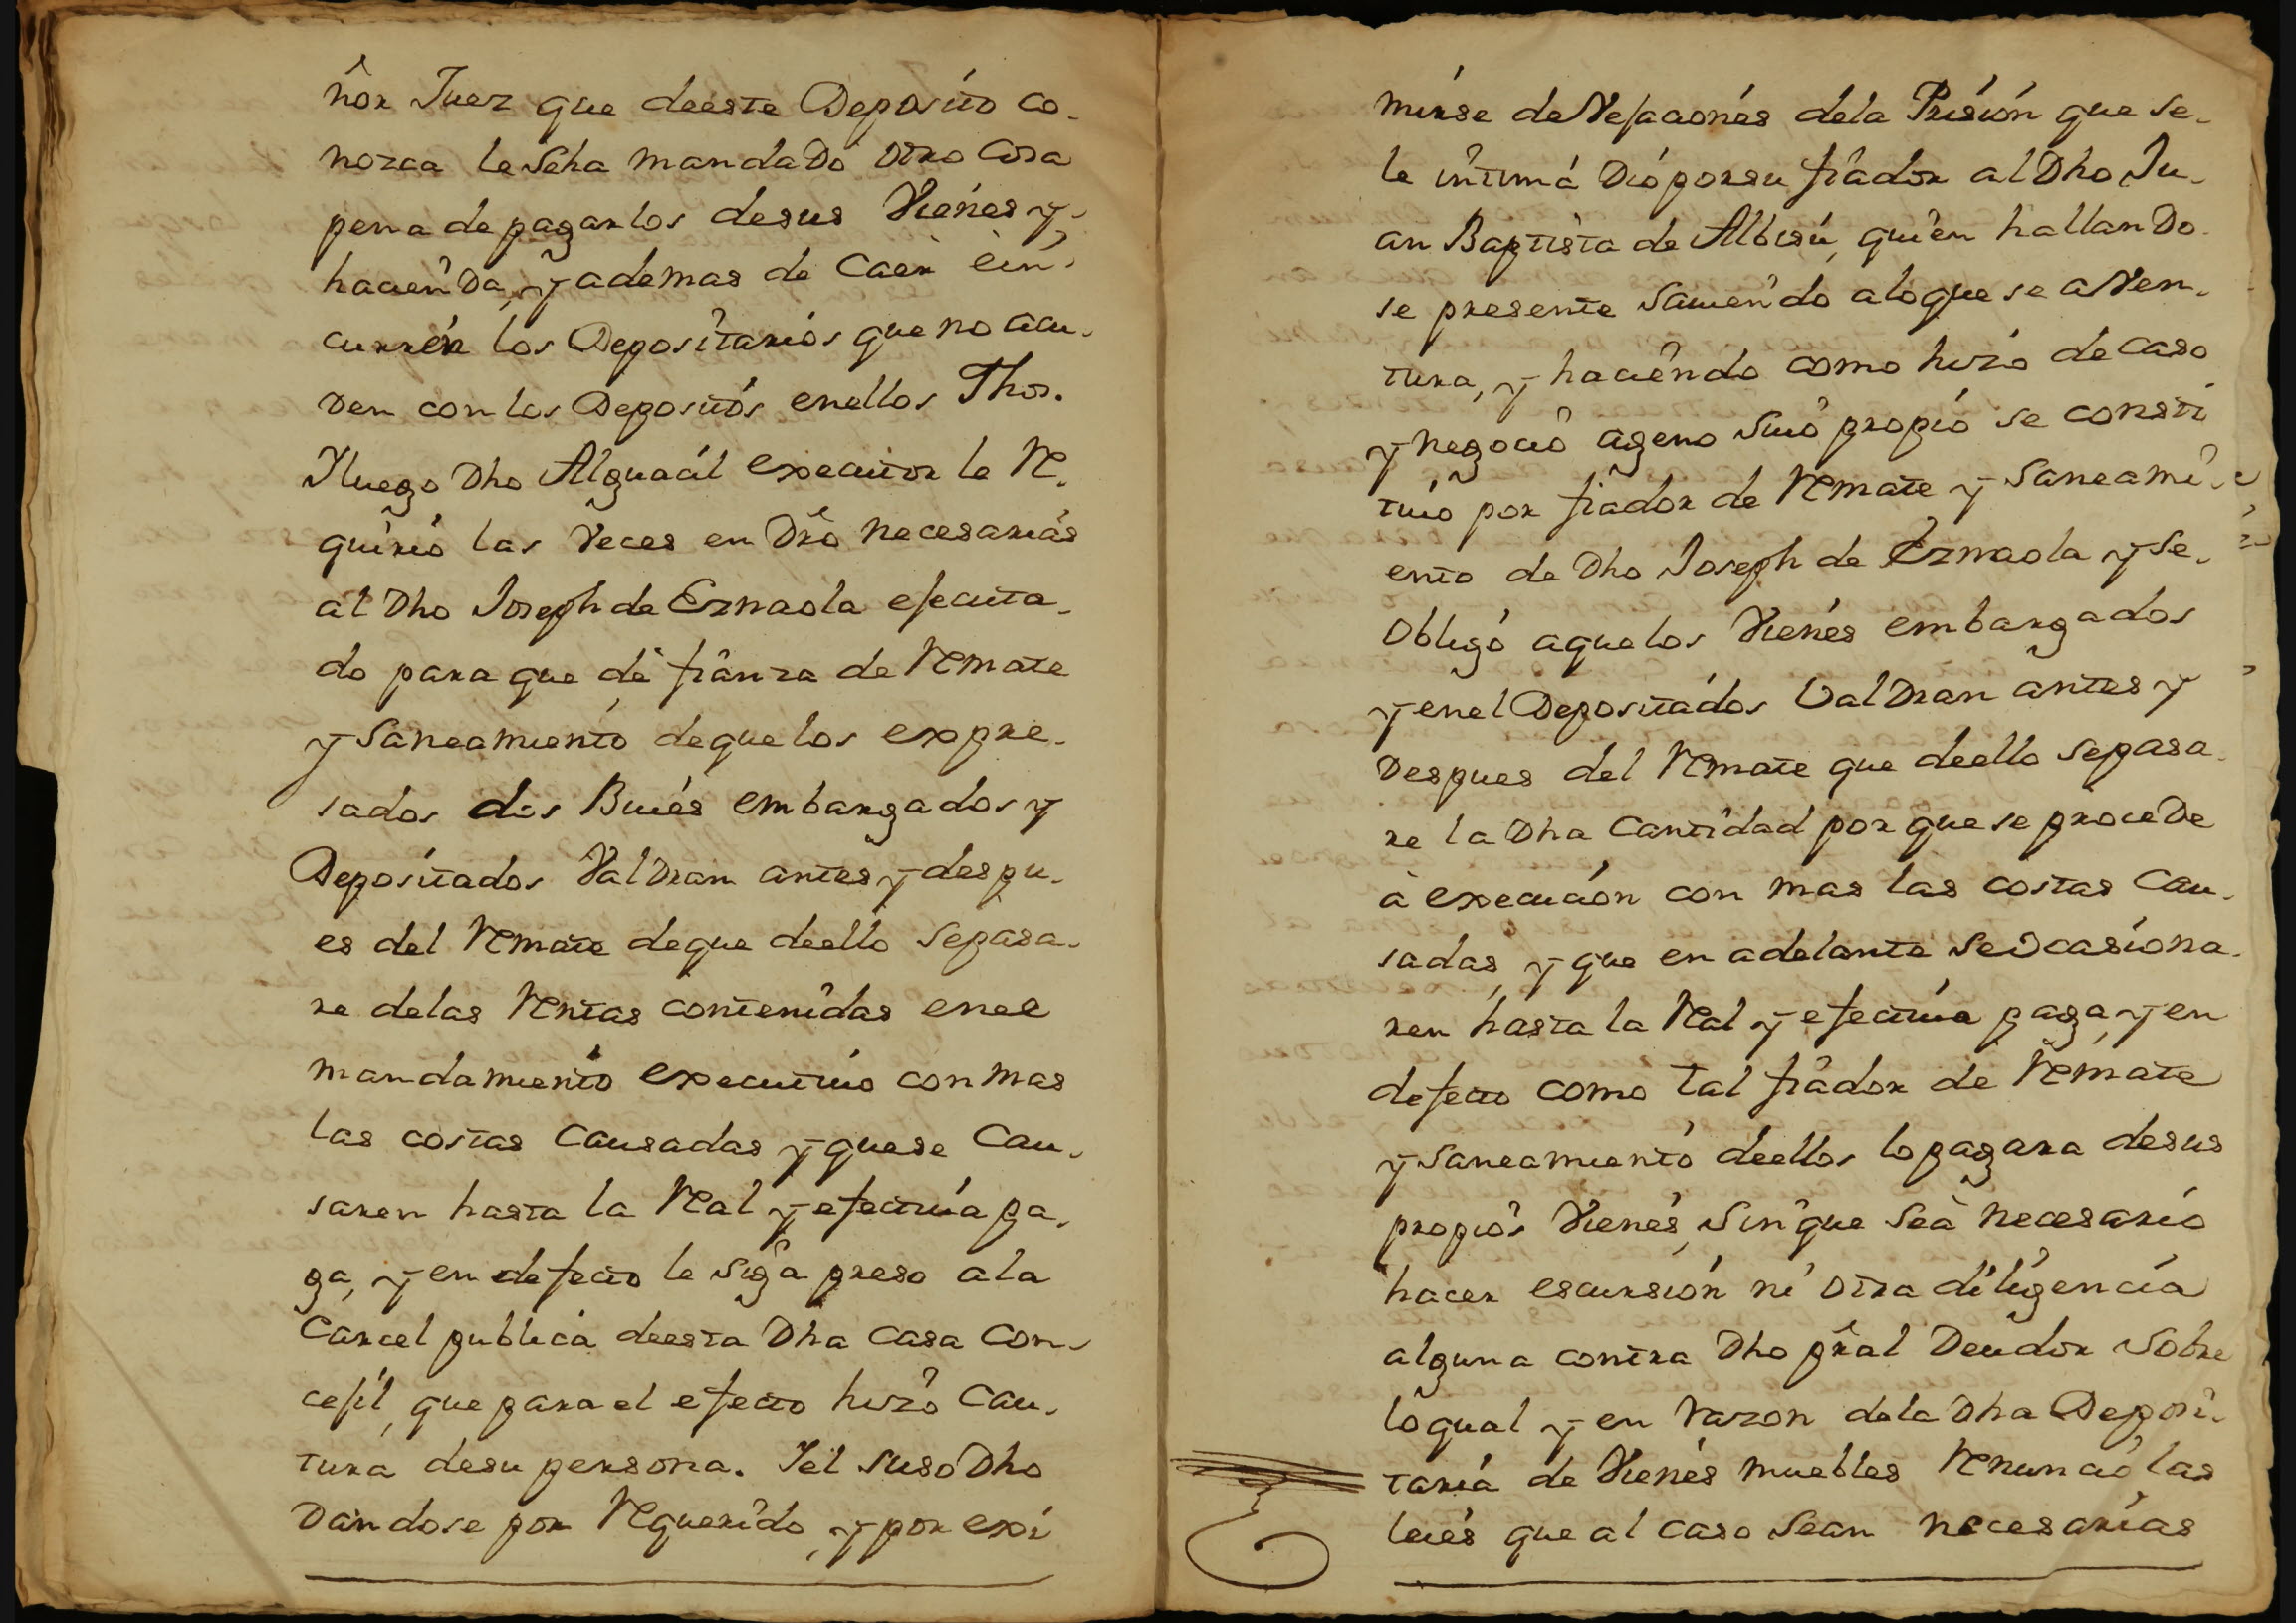 ñor Juez que deeste Deposito co-
nozca le Seha mandado otro Cosa
pena de pagarlos desus Vienes y
hacienda, y ademas de Caer è in-
curren los Depositarios que no acu-
den con los Depositos enellos Thos.
Y luego Dho Alguacil executor le Re-
quirió las Veces en Dro necesarias
al Dho Joseph de Eznaola efecuta-
do para que dè fianza de Remate
y Saneamiento deque los expre-
sados dos Bueés embargados y
Depositados Valdran antes y despu-
es del Remate deque deello Sepasa-
re delas Rentas contenidas enel
mandamiento executivo con mas
las costas Causadas y quese Cau-
saren hasta la Real y efectiva pa-
ga, y en defecto le Siga preso ala
Carcel publica deesta Dha Casa Con-
cefil, que para el efecto hizo Cau-
tura desu persona. Y el suso Dho
Dandose por Requerido, y por exi
mirse deVefaciones dela Prision que Se-
le intimá Dió porsu fiador al Dho Ju-
an Baptista de Albisu, quien hallando-
se presente Saviendo aloque se aven-
tura, y haciendo como hizo de caso
y negocio ageno Suio propio se consti
tuió por fiador de Remate y Saneami-
ento de Dho Joseph de Eznaola y Se-
Obligó aquelos Vienes embargados
y enel Depositados Valdran antes y
Despues del Remate que deello Sepasa-
re la Dha Cantidad por que se procede
à execución con mas las costas Cau-
sadas, y que en adelante Se Ocasiona-
ren hasta la Real y efectiva paga, y en
defecto como tal fiador de Remate
y Saneamiento deellos lo pagara desus
propios Vienes, Sin que Seà necesario
hacer escursión ni otra diligencia
alguna contra Dho pral Deudor Sobre
loqual y en razon dela Dha Deposi-
taria de Vienes muebles Renunció las
leies que al caso Sean necesarias